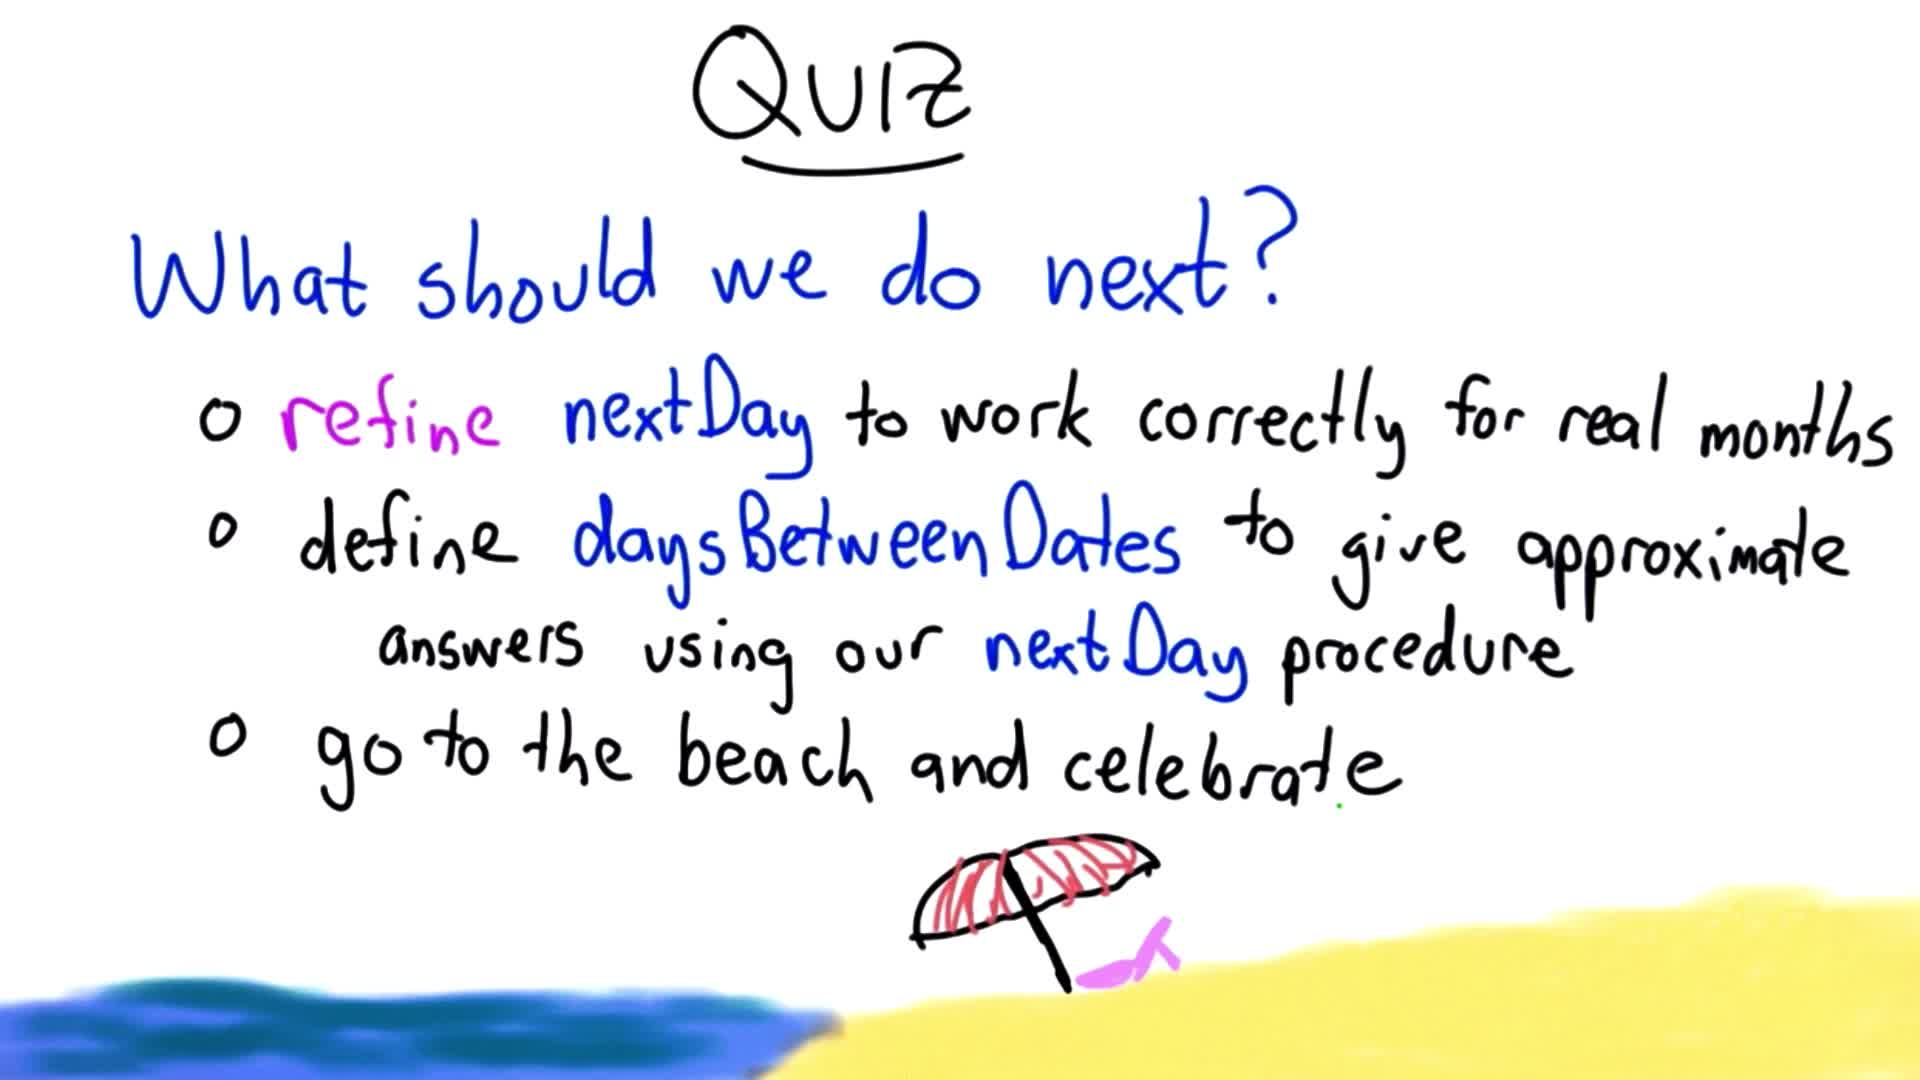 QUIZ
What should we do next?
o refine nextDay to work correctly for real months
o define daysBetweenDates to give approximate
answers using our nextDay procedure
o go to the beach and celebrate